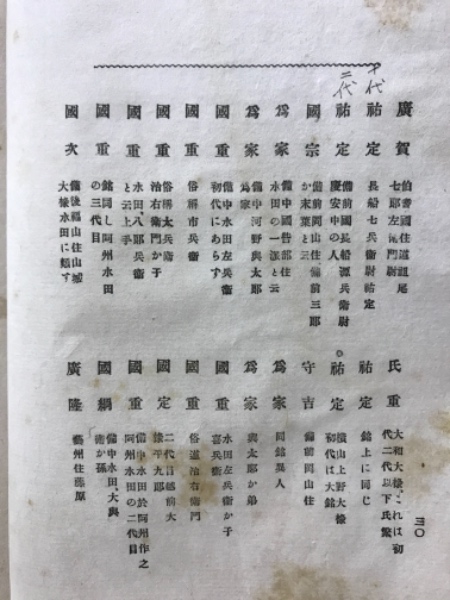 廣賀
伯耆國住道祖尾
七郎左衞門尉
十代
祐定
長船七兵衞尉祐定
二代
祐定
備前國長船源兵衞尉
慶安中の人
國宗
備前岡山住、備前三郎
か末葉と云
爲家
備中國呰部住
水田の一派と云
爲家
備中河野與太郎
爲家
國重
備中水田左兵衞
初代にあらず
國重
俗稱市兵衞
國重
俗稱太兵衞
治右衞門か子
國重
水田、八郎兵衞
と云上手
國重
銘同し阿州水田
の三代目
國次
備後福山住山城
大掾水田に類す
氏重
大和大掾、これは初
代二代以下氏繁
祐定
銘上に同じ
祐定
橫山上野大掾
初代は大銘
守吉
備前岡山住
爲家
同銘異人
爲家
與太郎か弟
國重
水田左兵衞か子
喜兵衞
國重
俗道治右衞門
國定
二代目越前大
掾平九郎
國重
備中水田於阿州作之
阿州水田の二代目
國綱
備中水田、大與
衞か孫
廣隆
藝州住藤原
三〇